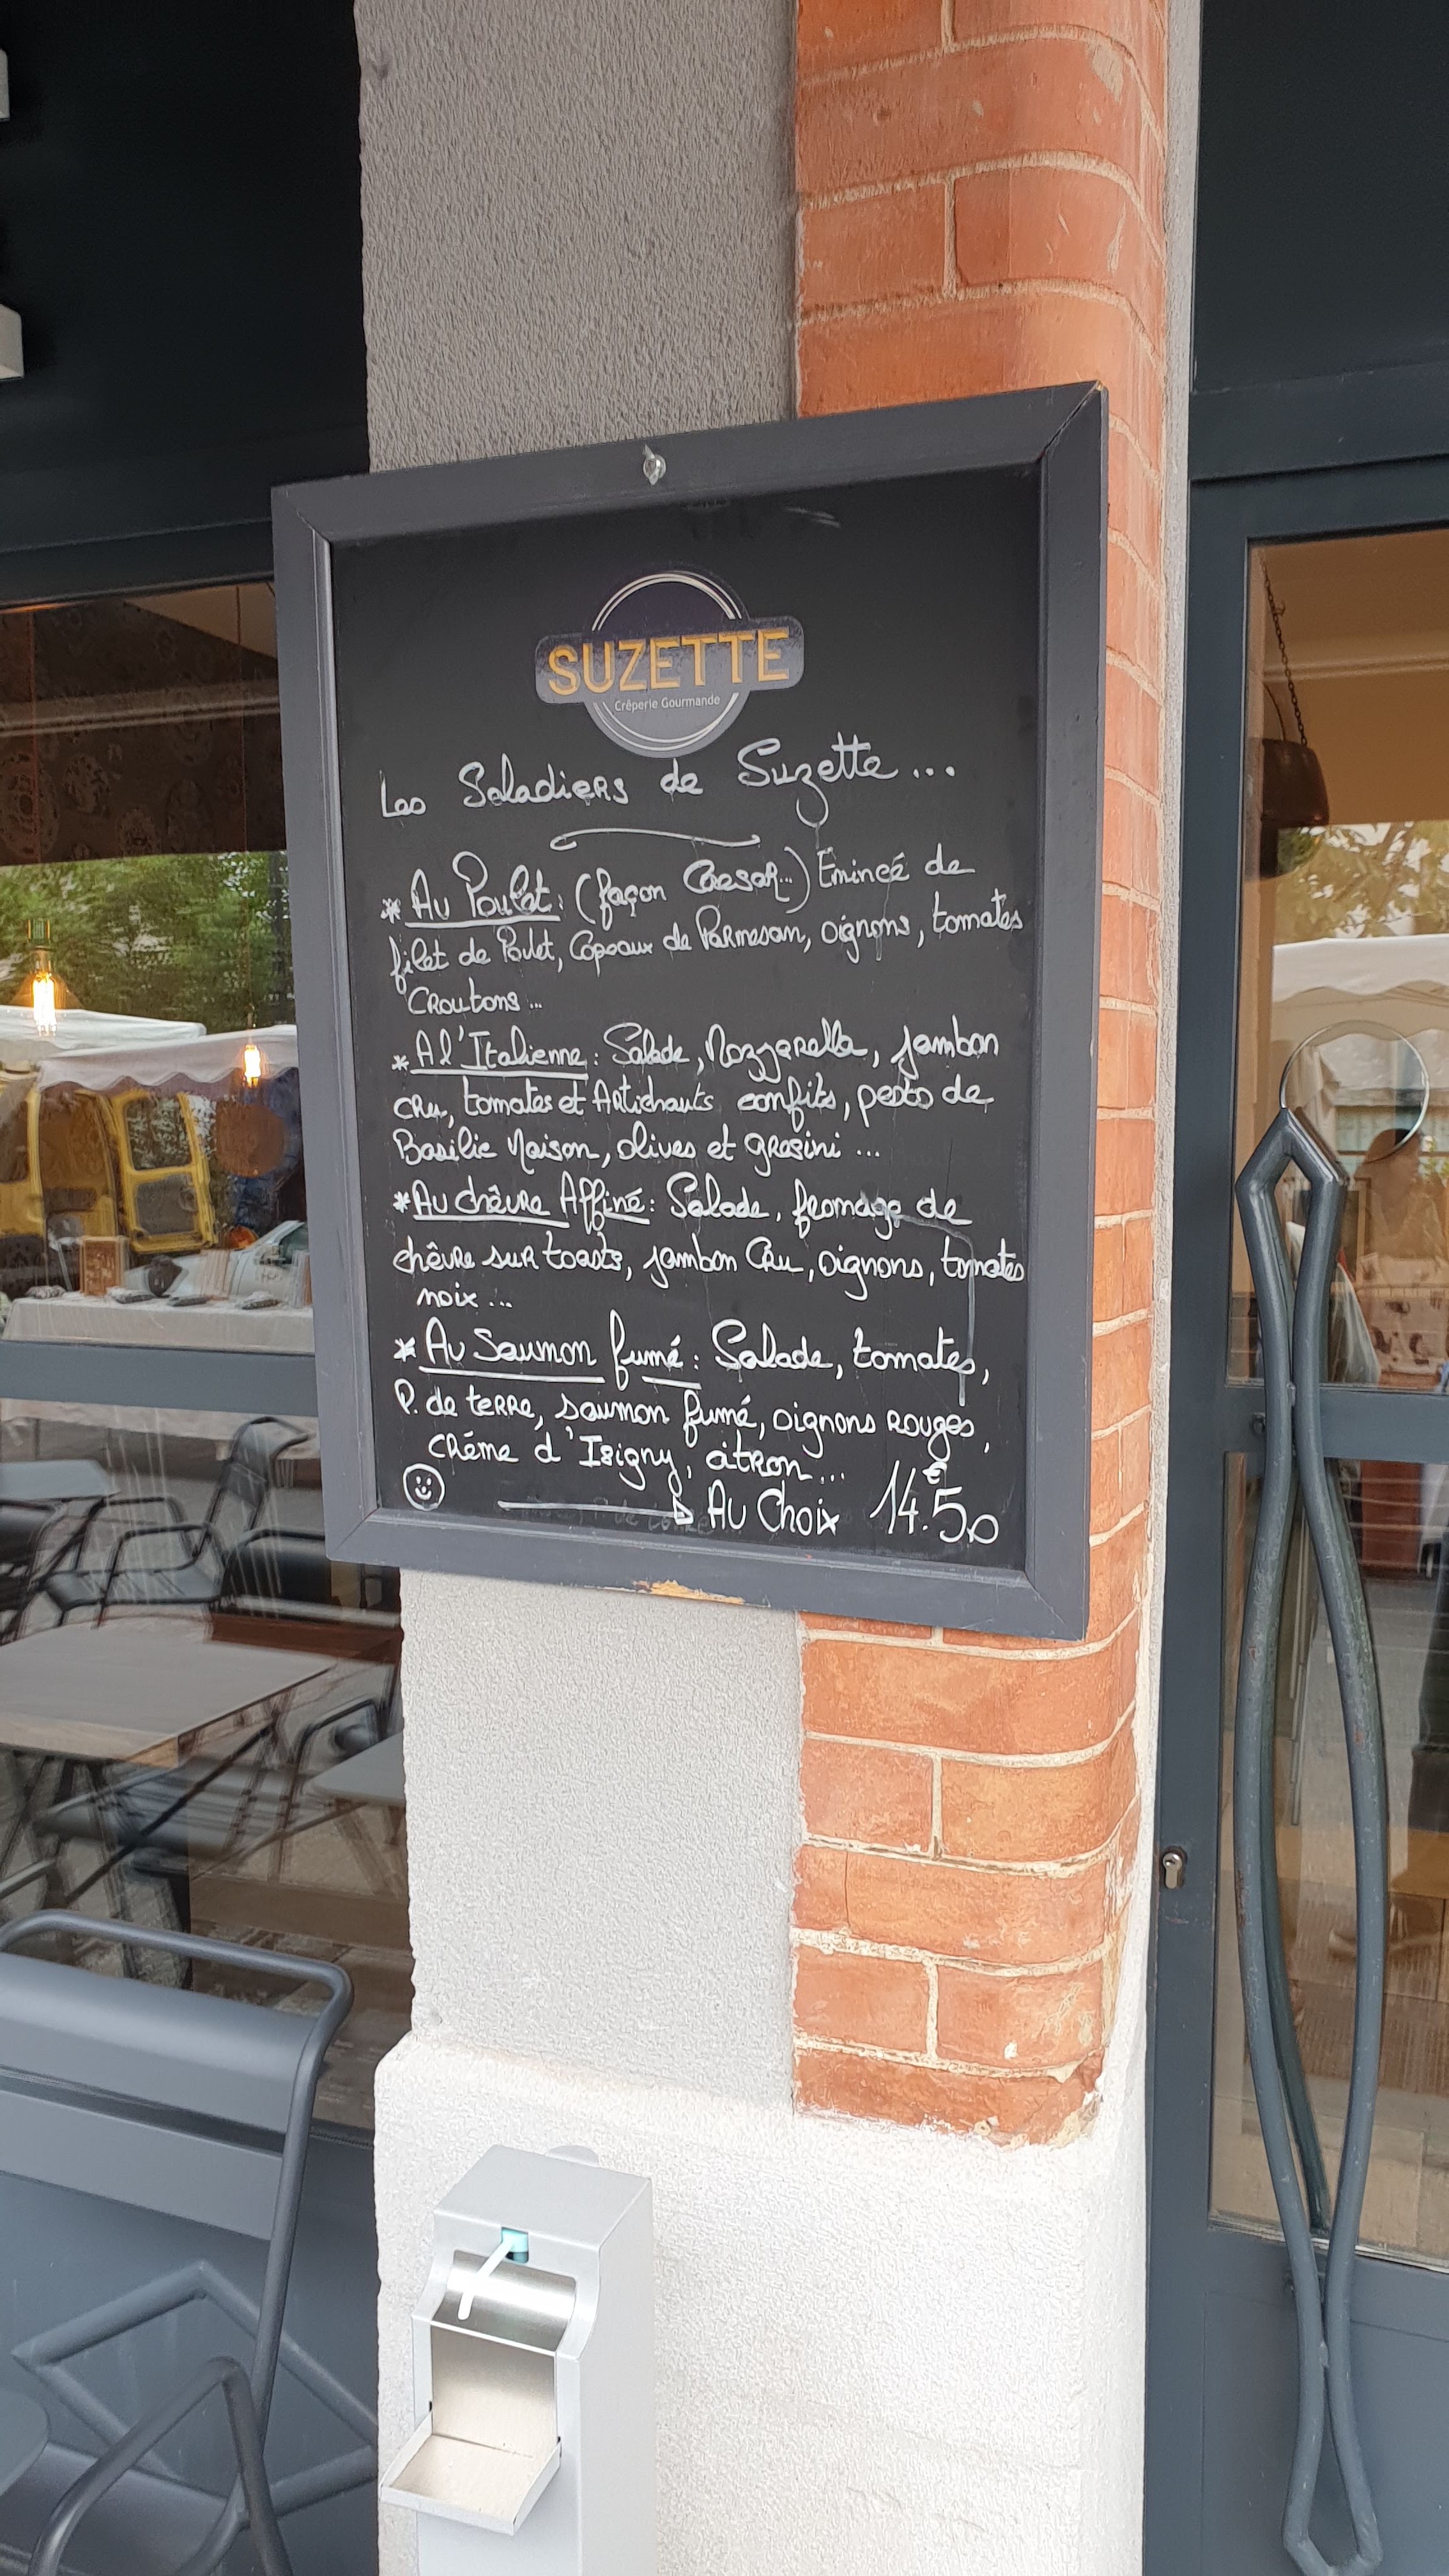 SUZETTE
Crêperie Gourmande
Les Saladiers de Suzette...
* Au Poulet : (façon Caesar...) Emincé de
filet de Poulet, Copeaux de Parmesan, oignons, tomates
Croutons...
* A l'Italienne : Salade, Mozzarella, jambon
cru, tomates et Artichauts confits, pesto de
Basilic Maison, olives et gresini ...
* Au chèvre Affiné : Salade, fromage de
chèvre sur toasts, jambon Cru, oignons, tomates
noix ...
* Au Saumon fumé : Salade, tomates,
P. de terre, saumon fumé, oignons rouges,
crème d'Isigny, citron...
Au Choix 14.50€